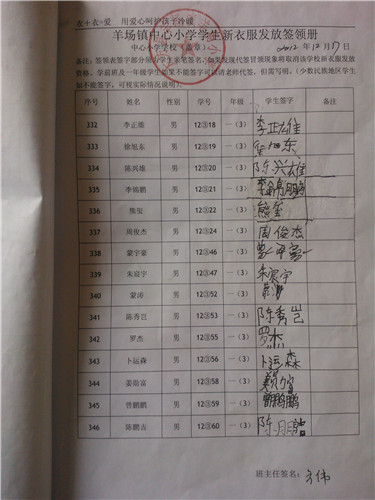 衣+衣=爱 用爱心呵护孩子冷暖
羊场镇中心小学学生新衣服发放签领册
中心小学学校(盖章) 2012年12月17日
备注:签领表签字部分须由学生亲笔签名,如果发现代签冒领现象将取消该学校新衣服发放
资格。学前班及一年级学生如果不能签字可以请老师代签,但需写明。(少数民族地区学生
如不能签字,可视实际情况说明)
序号 姓名 性别 学号 年级 学生签字 备注
332 李正雄 男 12③18 一(3) 李正雄
333 徐旭东 男 12③19 一(3) 徐旭东
334 陈兴雄 男 12③20 一(3) 陈兴雄
335 李锦鹏 男 12③21 一(3) 李锦鹏
336 熊玺 男 12③22 一(3) 熊玺
337 周俊杰 男 12③24 一(3) 周俊杰
338 蒙字豪 男 12③46 一(3)
339 朱宸宇 男 12③47 一(3) 朱宸宇
340 蒙涛 男 12③52 一(3)
341 陈秀岂 男 12③53 一(3) 陈秀岂
342 罗杰 男 12③55 一(3) 罗杰
343 卜运森 男 12③56 一(3) 卜运森
344 姜勋富 男 12③58 一(3)
345 曾鹏鹏 男 12③59 一(3) 曾鹏鹏
346 陈鹏吉 男 12③60 一(3) 陈鹏吉
班主任签名: